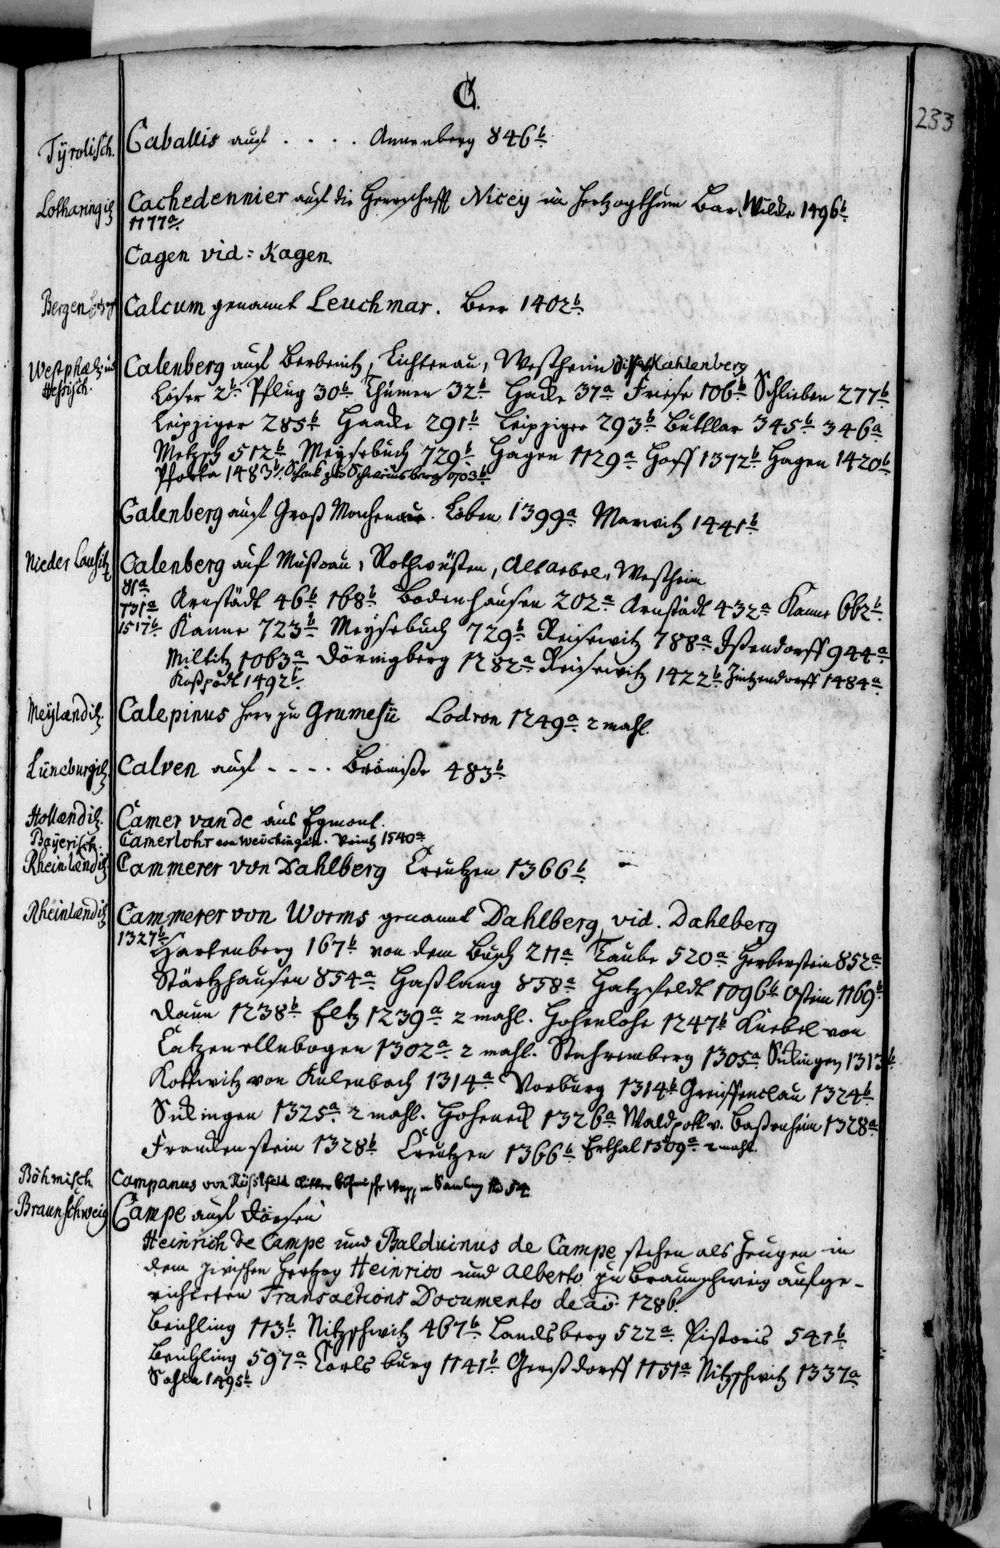 C.
233
Tyrolisch. Caballis auf . . . . Annenberg 846b
Lotharingis: Cachedennier auf die Herrschafft Nicey im Hertzogthum Bar. Wilcke 1496b
1177a
Cagen vid: Kagen.
Bergen Calcum genannt Leuchmar. Beer 1402b
Westphæl: und Calenberg auf Berbentz, Lichtenau, Westheim Kahlenberg
Hessisch. Löser 2b Pflug 30b Thümen 32b Hacke 37a Friese 106b Schlieben 277b
Leipziger 285b Haacke 291b Leipziger 293b Buttlar 345b 346a
Metzsch 512b Meysebuch 729b Hagen 1129a Hoff 1372b Hagen 1420b
1483b Schenk zu Schweinsberg 703b
Calenberg auf Groß Machenau. Löben 1399a Marwitz 1441b
Nieder Lausitz Calenberg auf Mußcau, Rothwesten, Westheim
81a
731a Arnstädt 46b 168b Bodenhausen 202a Arnstädt 432a Kanne 662b
1517b Kanne 723b Meysebuch 729b Reisewitz 788a Issendorff 944a
Miltitz 1063a Dörnigberg 1282a Reisewitz 1422b Zintzendorff 1484a
Koßpodt 1492b
Meylændis. Calepinus Herr zu Grumesü Lodron 1249a 2 mahl.
Lüneburgis. Calven auf - - - . Brömße 483b
Hollændis. Camer van de aus Egmont.
Bayerisch. Camerlohr von 1540a
Rheinlændis Cammerer von Dahlberg Creutzen 1366b
Rheinlændis Cammerer von Worms genannt Dahlberg, vid. Dahlberg
1327b Hartenberg 167b von dem Busch 211a Taube 520a Herberstein 852a
Störtzhausen 854a Haßlang 858a Hatzfeldt 1096b Ostein 1169b
Daun 1238b Eltz 1239a 2 mahl. Hohenlohe 1247b Knebel von
Catzenellnbogen 1302a 2 mahl. Stahremberg 1305a Sickingen 1313b
Kottwitz von Aulenbach 1314a Vorburg 1314b Greiffenclau 1324b
Sickingen 1325a 2 mahl. Hoheneck 1326a Waldpott v. Baßenheim 1328a
Franckenstein 1328b Creutzen 1366b Erthal 1509a 2 mahl.
Böhmisch Campanus von
Braunschweig Campe auf
Heinrich de Campe und Balduinus de Campe stehen als Zeugen in
dem zwischen Hertzog Heinrico und Alberto zu Braunschweig aufge-
richteten Transactions Documento de ao. 1286.
Beichling 113b Nitzschwitz 467b Landsberg 522a Pistoris 541b
Beichling 597a Carlsburg 1141b Gerßdorff 1151a Nitzschwitz 1337a
Sahla 1495b